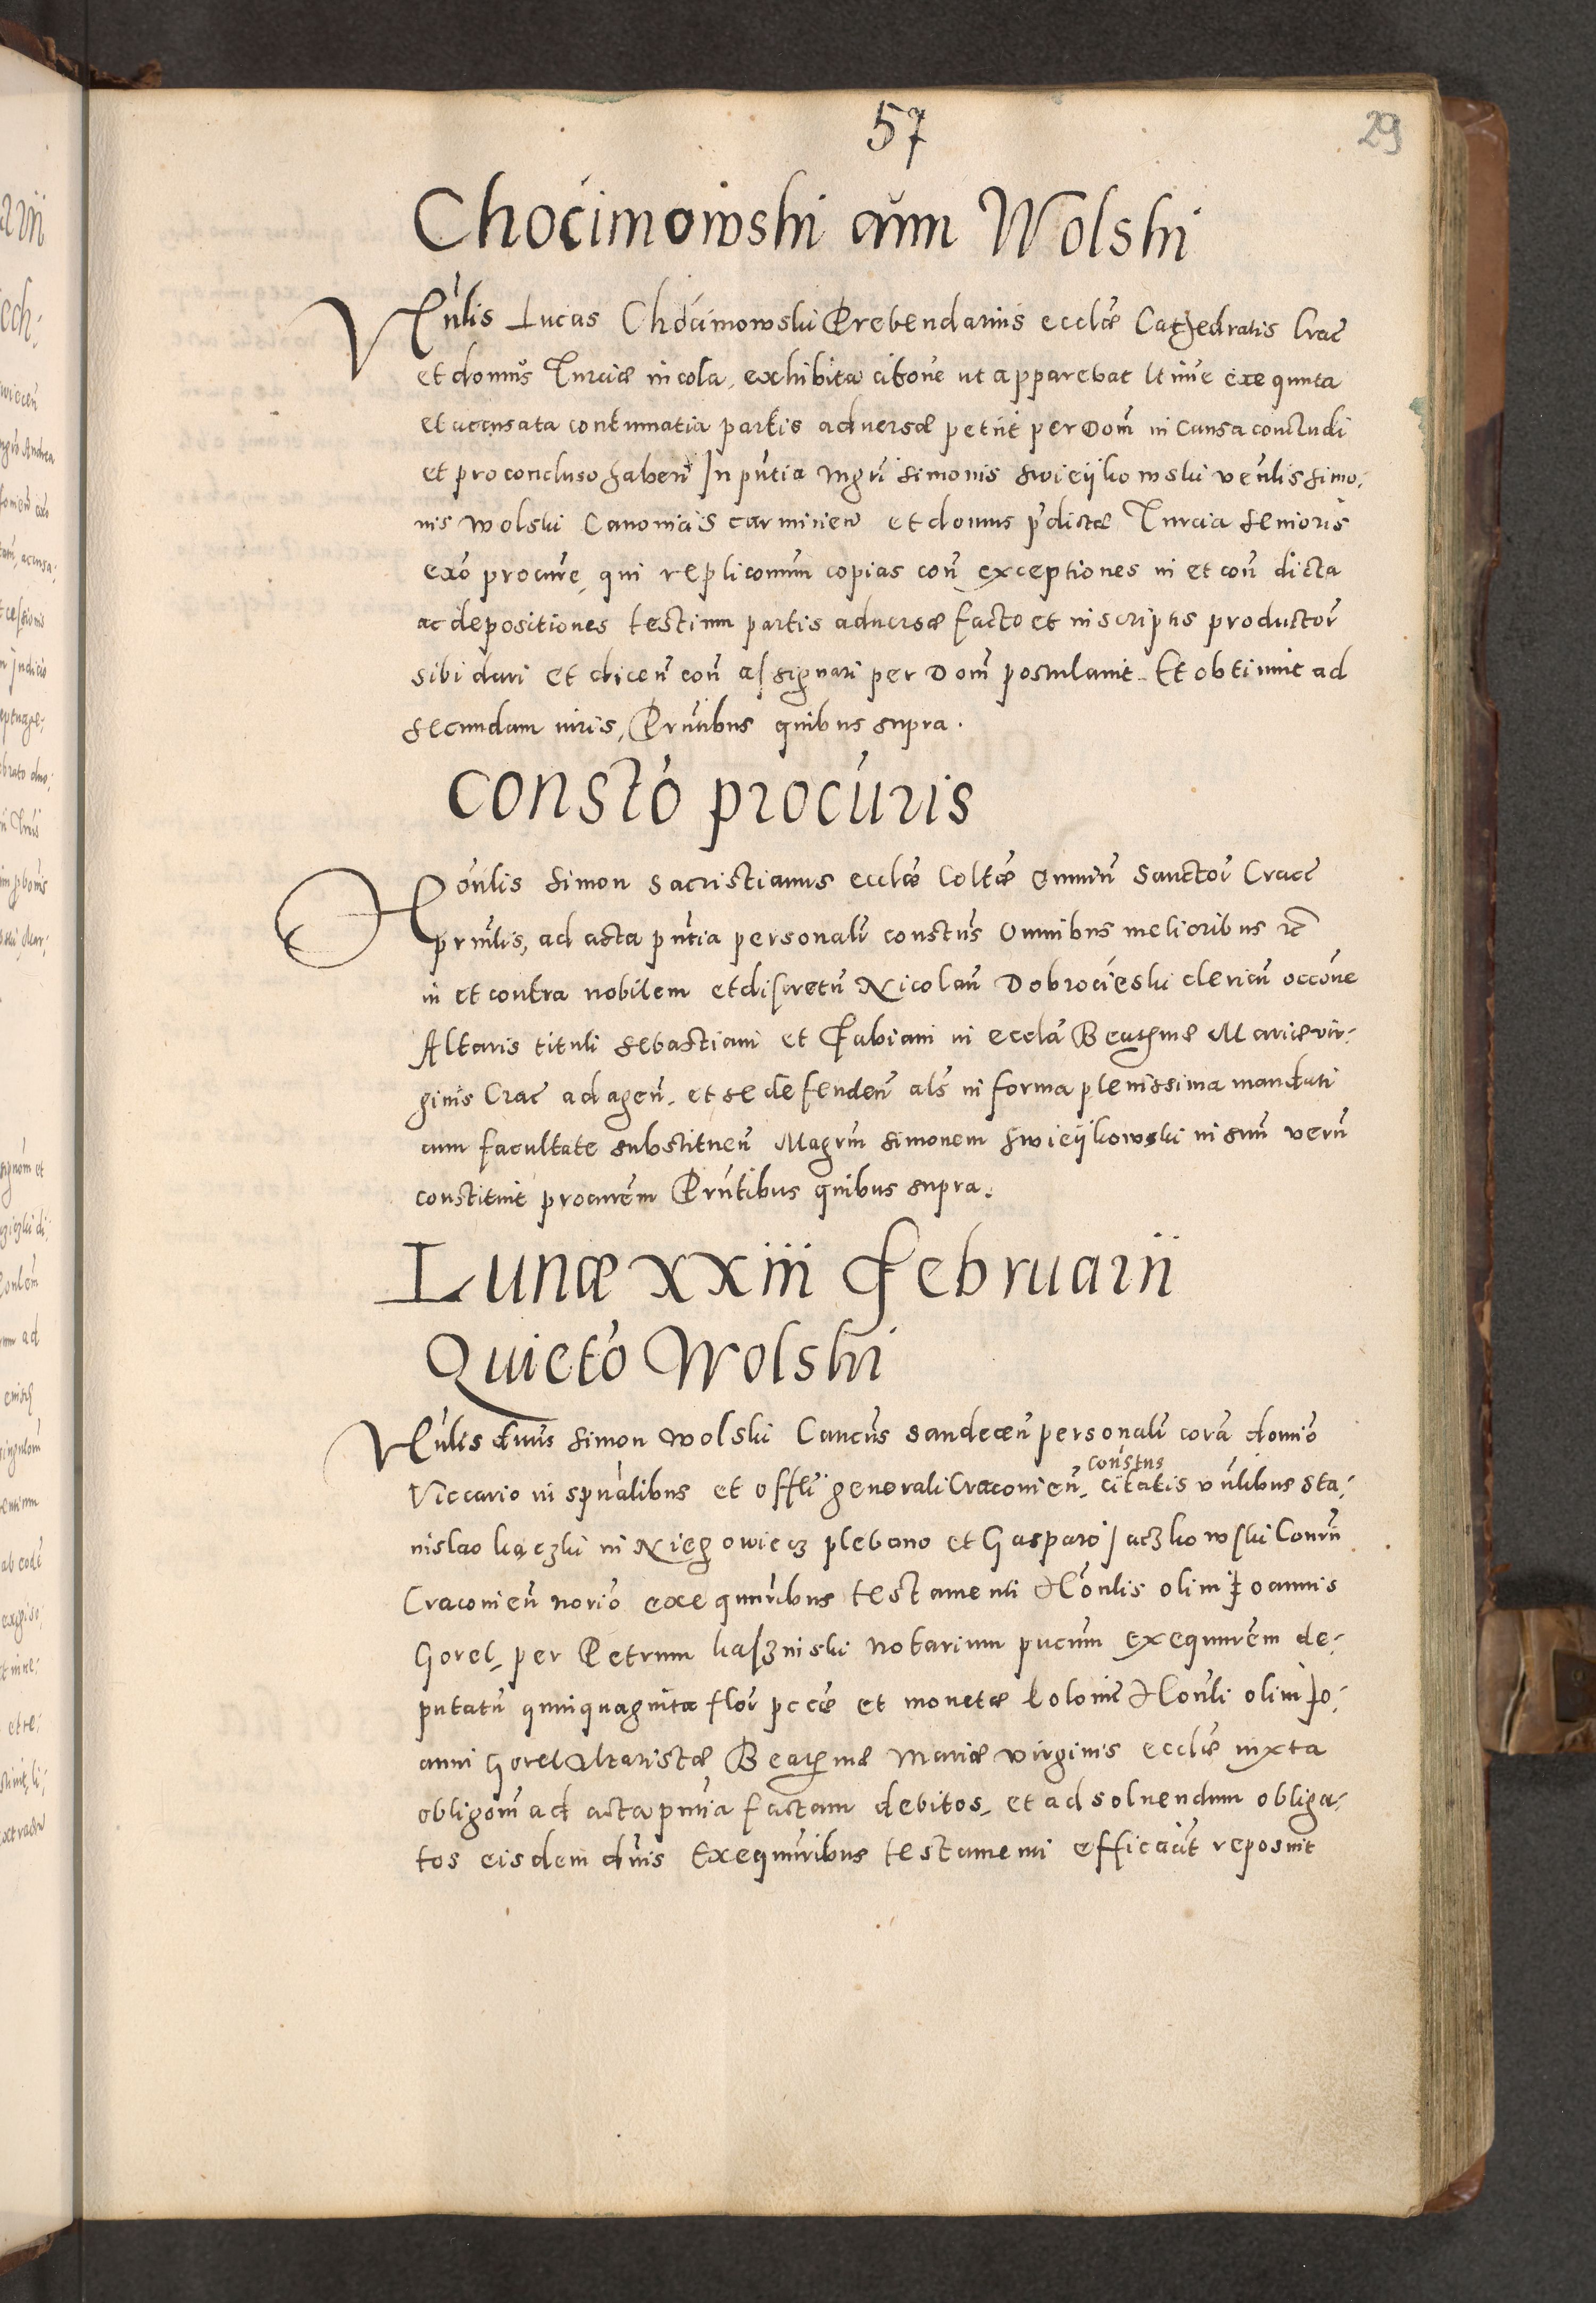 57
29
Chocimowski cum Wolski
Vēnlis Lucas Chocimowski Prebendarius ecclæ Cathedralis Crac̄
et domus Turciæ incola, exhibita citōne ut apparebat ltīme exequuta
et accusata contumatia partis adversæ petiit per Dom̄ in causa concludi
et pro concluso haberi In pn̄tia Mgri Simonis Swieÿkowski venlis Simo-
nis Wolski Canonicis carminien̄ et domus p̄dictæ Turcia Senioris
exō procūre, qui replicōnum copias con̄ exceptiones in et con̄ dicta
ac depositiones testium partis adversæ facto et in scriptis productor̄
sibi dari et dicen̄ con̄ assignari per Dom̄ postulavit. Et obtinuit ad
secundam iuris, Prn̄tibus quibus supra.
Constō procūris
Honlis Simon Sacristianus ecclæ Coltæ Omniū Sanctor̄ Crac̄
prn̄lis, ad acta pn̄tia personalr̄ constūs Omnibus melioribus &c
in et contra nobilem et discretū Nicolaū Dobrocieski clericū occōne
Altaris tituli Sebastiani et Fabiani in ecclā Beatismæ Mariæ vir-
ginis Crac̄ ad agen̄. et se defenden̄ als̄ in forma plenissima mandati
cum facultate substituen̄ Magrm̄ Simonem Swieÿkowski in suū verū
constituit procurēm Prn̄tibus quibus supra.
Lunæ xxiii Februarii
Quietō Wolski
Vēnlis dn̄us Simon Wolski Cancūs Sandecen̄ personalr̄ corā domīo
constus
Viccario in spūalibus et offl̄i generali Craconien̄. citatis vn̄libus Sta-
nislao kączki in Niegowiecz plebano et Gasparo Jaczkowski Conrū
Craconien̄ noriō exequūribus testamenti Honlis olim Joannis
Gorel, per Petrum kaszniski Notarium pucum exequurēm de-
putatū quinquaginta flor̄ pccæ et monetæ Poloniæ Honli olim Jo-
anni Gorel Altaristæ Beatismæ Mariæ virginis ecclæ iuxta
obligōm ad acta pn̄tia factam debitos, et ad solvendum obliga-
tos eisdem dn̄is Exequūribus testamenti efficacit̄ reposuit